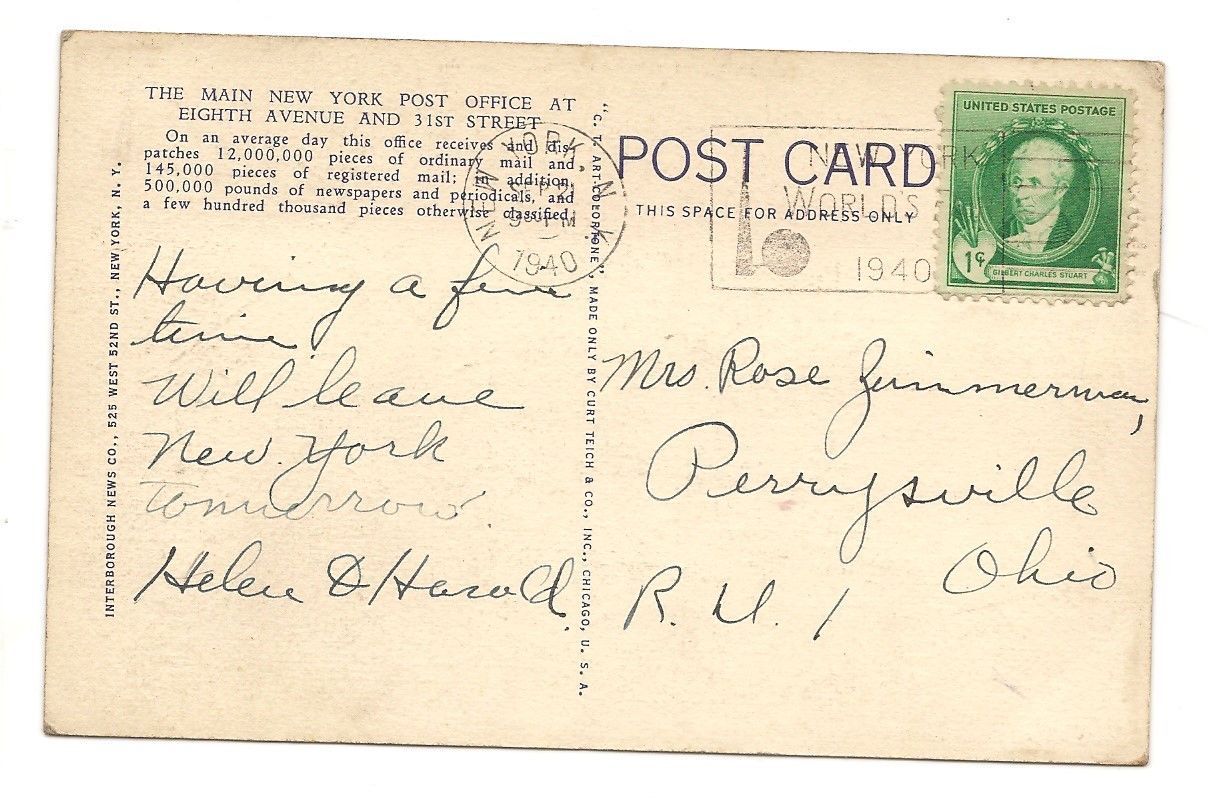 THE MAIN NEW YORK POST OFFICE AT
EIGHTH AVENUE AND 31ST STREET
On an average day this office receives and dis-
patches 12,000,000 pieces of ordinary mail and
145,000 pieces of registered mail; in addition,
500,000 pounds of newspapers and periodicals, and
a few hundred thousand pieces otherwise classified.
Having a fine
time.
Will leave
New York
Tomorrow.
Helen & Harold.
INTERBOROUGH NEWS CO., 525 WEST 52ND ST., NEW YORK, N. Y.
"C. T. ART-COLORTONE," MADE ONLY BY CURT TEICH & CO., INC., CHICAGO, U. S. A.
NEW YORK, N. Y.
SEP 21
PM
1940
POST CARD
THIS SPACE FOR ADDRESS ONLY
NEW YORK
WORLD'S
1940
UNITED STATES POSTAGE
1¢
GILBERT CHARLES STUART
Mrs. Rose Zimmerman,
Perrysville
Ohio
R. D. 1